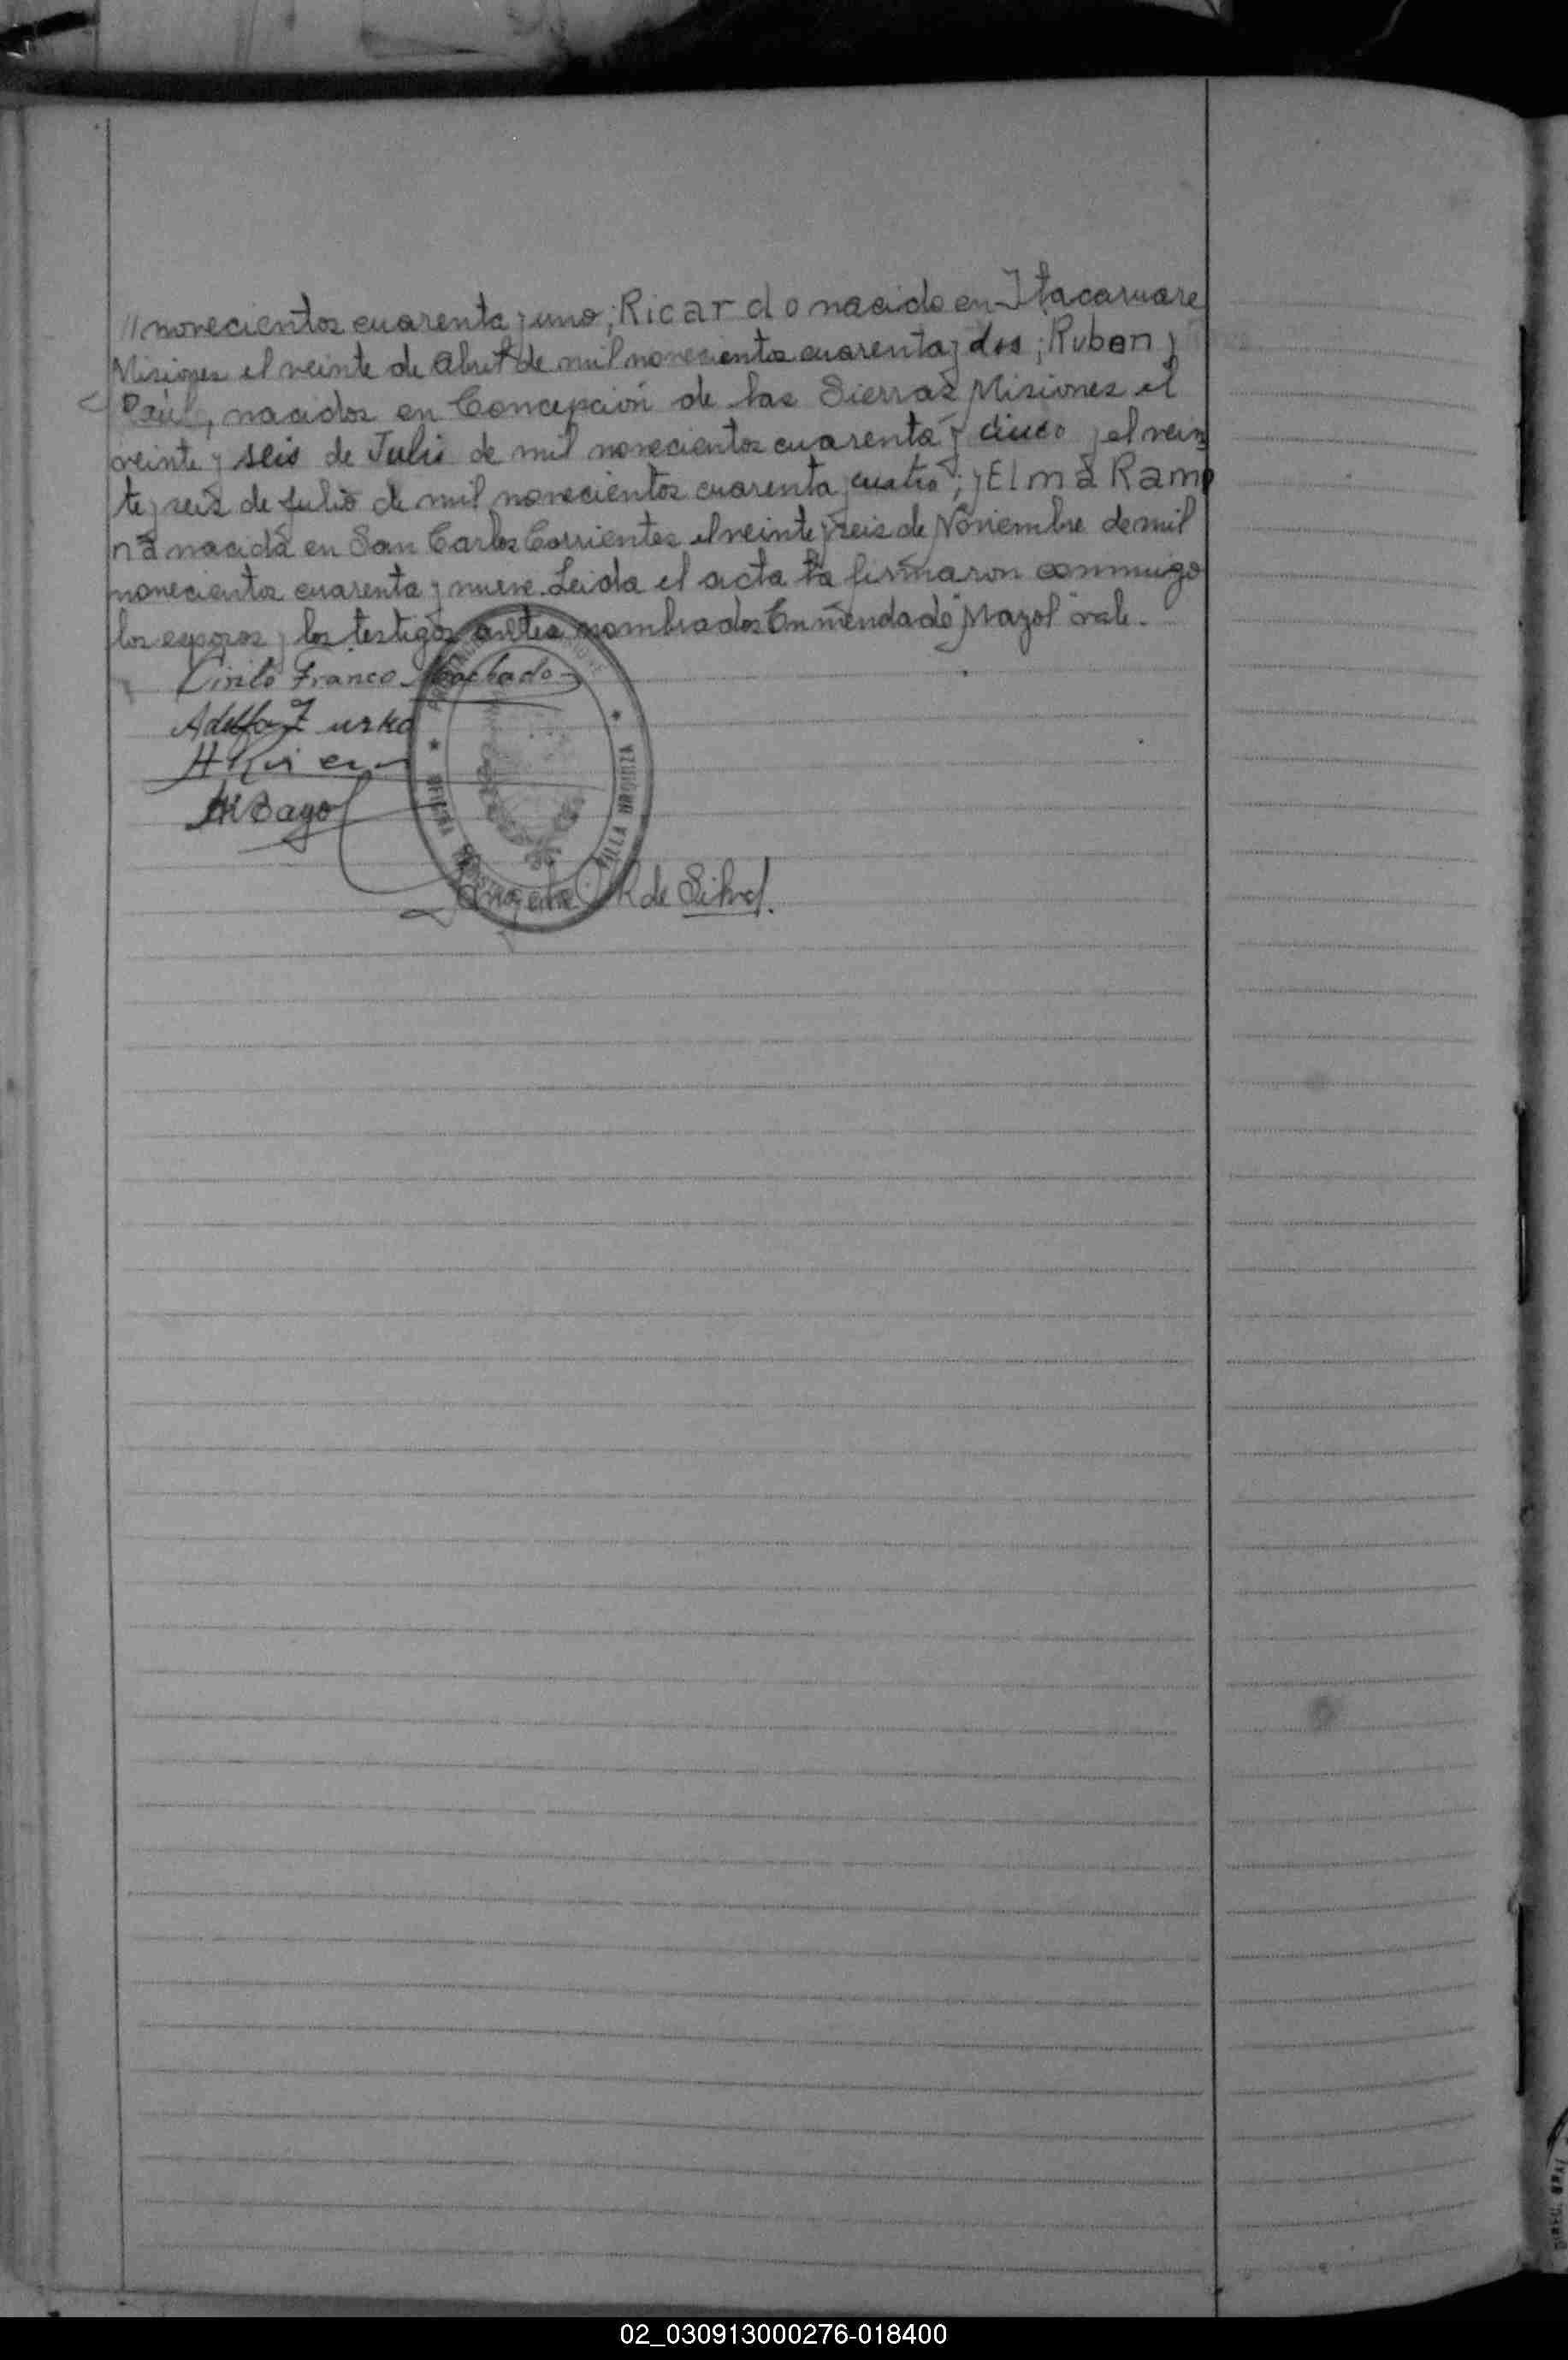 // novecientos cuarenta y uno; Ricardo nacido en Itacaruare
Misiones el veinte de Abril de mil novecientos cuarenta y dos; Ruben y
Raúl, nacidos en Concepción de las Sierras Misiones el
veinte y seis de Julio de mil novecientos cuarenta y cinco y el vein
te y seis de Julio de mil novecientos cuarenta y cuatro; y Elma Ramo
na nacida en San Carlos Corrientes el veinte y seis de Noviembre de mil
novecientos cuarenta y nueve. Leida el acta la firmaron conmigo
los esposos y los testigos antes nombrados Enmendado "Mayol" vale.-
Cirilo Franco Machado
VILLA URQUIZA
R de Silva.
02_030913000276-018400